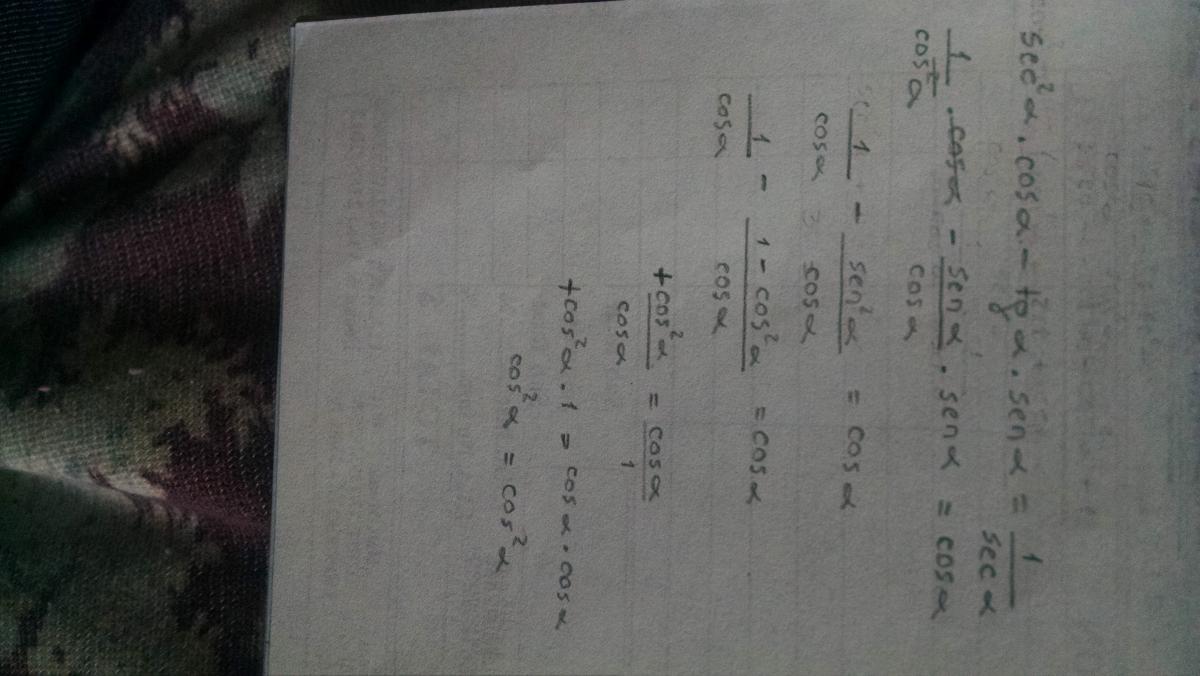 sec²α . cosα - tgα . senα = 1/secα
1/cos²α . cosα - senα/cosα . senα = cosα
1/cosα - sen²α/cosα = cosα
1/cosα - 1-cos²α/cosα = cosα
+cos²α/cosα = cosα/1
+cos²α . 1 = cosα . cosα
cos²α = cos²α